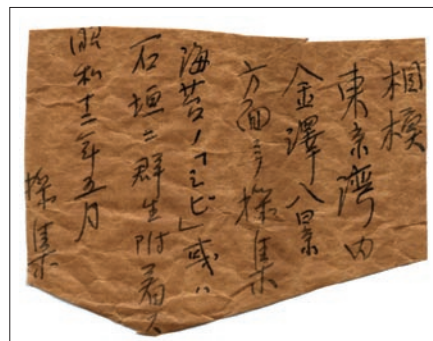 相模
東京灣内
金澤八景
方面ニテ採集
海苔ノ「ヒビ」或ハ
石垣ニ群生附着ス
昭和十二年五月
採集